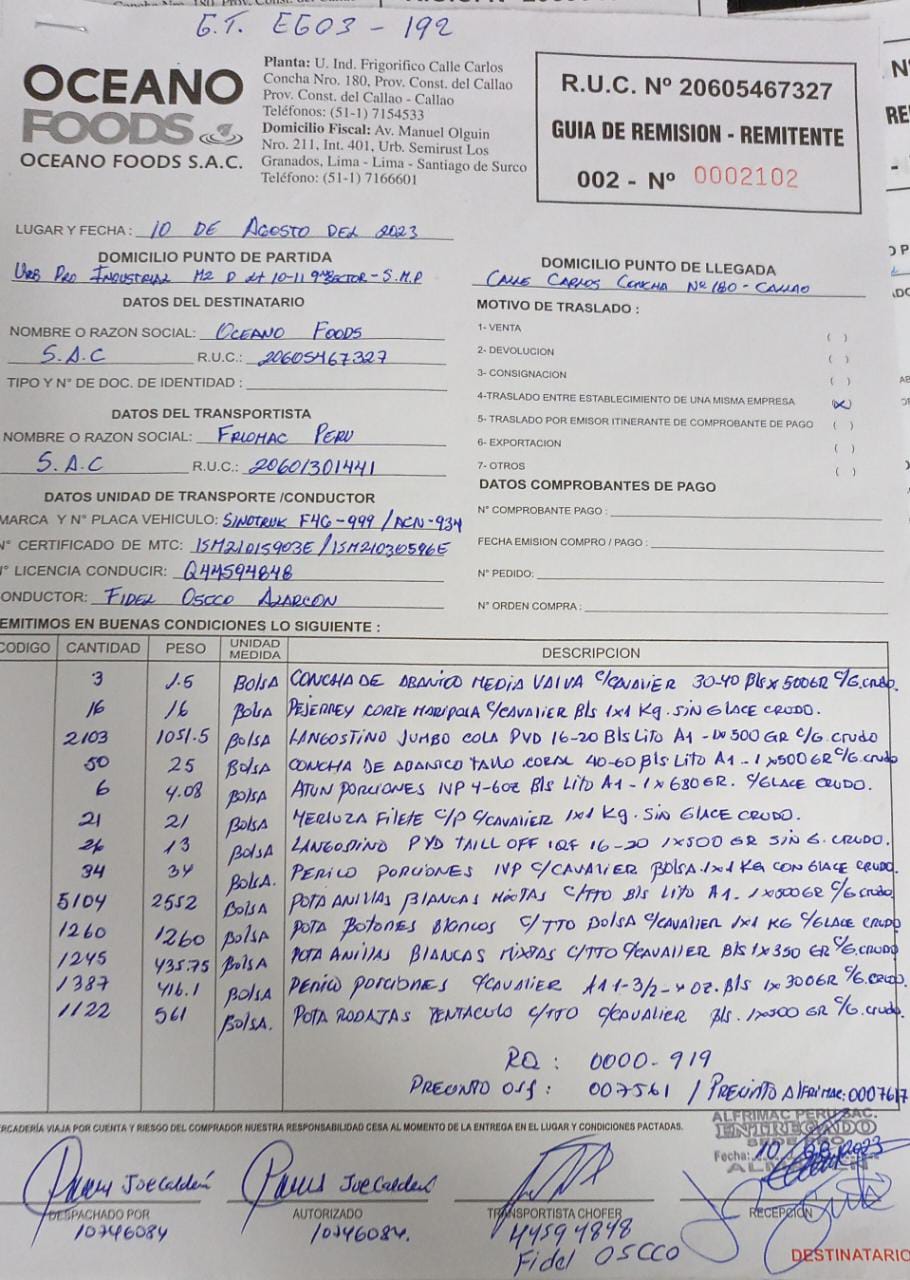 G.T. EG03 - 192
OCEANO
FOODS
OCEANO FOODS S.A.C.
Planta: U. Ind. Frigorifico Calle Carlos
Concha Nro. 180, Prov. Const. del Callao
Prov. Const. del Callao - Callao
Teléfonos: (51-1) 7154533
Domicilio Fiscal: Av. Manuel Olguin
Nro. 211, Int. 401, Urb. Semirust Los
Granados, Lima - Lima - Santiago de Surco
Teléfono: (51-1) 7166601
R.U.C. Nº 20605467327
GUIA DE REMISION - REMITENTE
002 - Nº 0002102
LUGAR Y FECHA: 10 DE AGOSTO DEL 2023
DOMICILIO PUNTO DE PARTIDA
URB PRO INDUSTRIAL MZ D LT 10-11 9º SECTOR - S.M.P
DOMICILIO PUNTO DE LLEGADA
CALLE CARLOS CONCHA Nº 180 - CALLAO
DATOS DEL DESTINATARIO
NOMBRE O RAZON SOCIAL: OCEANO FOODS
S.A.C R.U.C.: 20605467327
TIPO Y N° DE DOC. DE IDENTIDAD :
DATOS DEL TRANSPORTISTA
NOMBRE O RAZON SOCIAL: FRIOMAC PERU
S.A.C R.U.C.: 20601301441
DATOS UNIDAD DE TRANSPORTE /CONDUCTOR
MARCA Y N° PLACA VEHICULO: SINOTRUK F4G-999 / ACN-934
N° CERTIFICADO DE MTC: 15M21015903E / 15M21030596E
N° LICENCIA CONDUCIR: Q44594848
CONDUCTOR: FIDEL OSCCO ALARCON
MOTIVO DE TRASLADO :
1- VENTA ( )
2- DEVOLUCION ( )
3- CONSIGNACION ( )
4-TRASLADO ENTRE ESTABLECIMIENTO DE UNA MISMA EMPRESA (X)
5- TRASLADO POR EMISOR ITINERANTE DE COMPROBANTE DE PAGO ( )
6- EXPORTACION ( )
7- OTROS ( )
DATOS COMPROBANTES DE PAGO
N° COMPROBANTE PAGO :
FECHA EMISION COMPRO / PAGO :
N° PEDIDO:
N° ORDEN COMPRA :
EMITIMOS EN BUENAS CONDICIONES LO SIGUIENTE :
CODIGO CANTIDAD PESO UNIDAD MEDIDA DESCRIPCION
3 1.5 BOLSA CONCHA DE ABANICO MEDIA VALVA C/CAVALIER 30-40 Bls x 500GR C/G. crudo.
16 16 BOLSA PEJERREY CORTE MARIPOSA C/CAVALIER Bls 1x1 Kg. SIN GLACE CRUDO.
2103 1051.5 BOLSA LANGOSTINO JUMBO COLA PVD 16-20 Bls LITO A1 - 1x500 GR C/G crudo
50 25 BOLSA CONCHA DE ABANICO TALLO CORAL 40-60 Bls LITO A1 - 1x500GR C/G. crudo
6 4.08 BOLSA ATUN PORCIONES IVP 4-6oz Bls LITO A1 - 1x680GR. C/GLACE CRUDO.
21 21 BOLSA MERLUZA FILETE C/P C/CAVALIER 1x1 Kg. SIN GLACE CRUDO.
26 13 BOLSA LANGOSTINO PYD TAILL OFF IQF 16-20 1x500 GR SIN G. CRUDO.
34 34 BOLSA. PERICO PORCIONES IVP C/CAVALIER BOLSA 1x1 KG CON GLACE CRUDO.
5104 2552 BOLSA POTA ANILLAS BLANCAS MIXTAS C/TTO Bls LITO A1. 1x500GR C/G. crudo
1260 1260 BOLSA POTA BOTONES BLANCOS C/TTO BOLSA C/CAVALIER 1x1 KG C/GLACE CRUDO
1245 435.75 BOLSA POTA ANILLAS BLANCAS MIXTAS C/TTO C/CAVALIER Bls 1x350 GR C/G. CRUDO
1387 416.1 BOLSA PERICO PORCIONES C/CAVALIER A1 1-3/2-4 OZ. Bls 1x300GR C/G. crudo.
1122 561 BOLSA. POTA RODAJAS TENTACULO C/TTO C/CAVALIER Bls. 1x500 GR C/G. crudo.
RQ : 0000-919
PRECINTO OSF : 007561 / PRECINTO ALFRIMAC: 0007617
MERCADERÍA VIAJA POR CUENTA Y RIESGO DEL COMPRADOR NUESTRA RESPONSABILIDAD CESA AL MOMENTO DE LA ENTREGA EN EL LUGAR Y CONDICIONES PACTADAS.
ALFRIMAC PERU SAC.
ENTREGADO
Fecha: 10 08 2023
DESPACHADO POR
10746084
AUTORIZADO
10746084.
TRANSPORTISTA CHOFER
44594848
Fidel OSCCO
RECEPCIÓN
DESTINATARIO